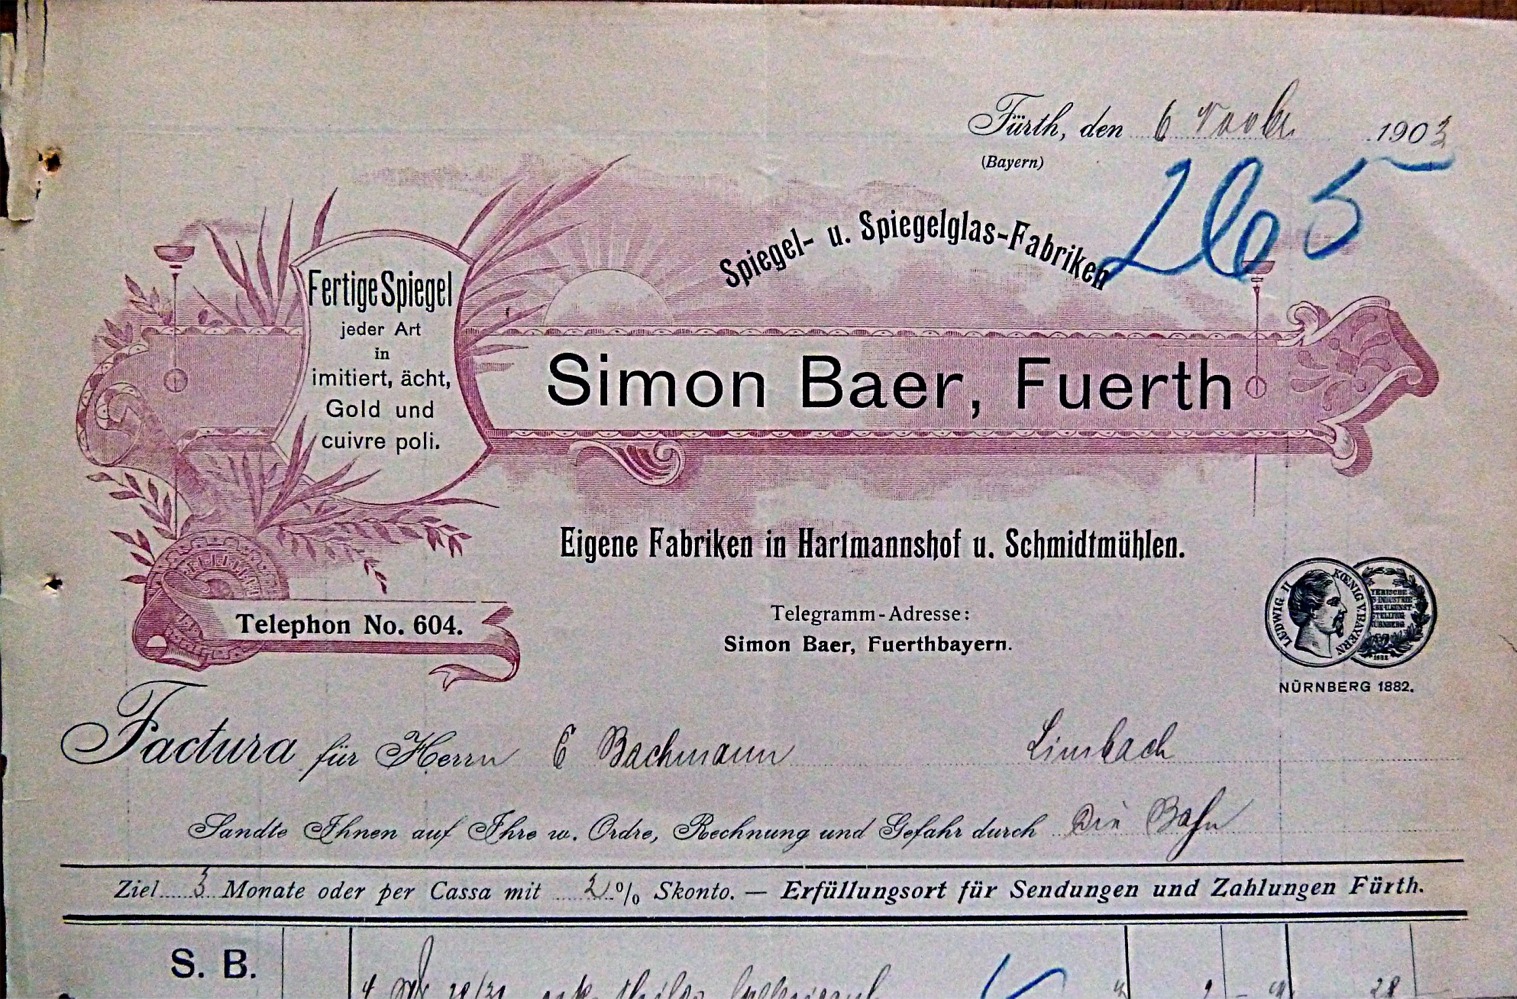 Fürth, den 6 Novbr. 1903
(Bayern)
265
Spiegel- u. Spiegelglas-Fabriken
Fertige Spiegel
jeder Art
in
imitiert, ächt,
Gold und
cuivre poli.
Simon Baer, Fuerth
Eigene Fabriken in Hartmannshof u. Schmidtmühlen.
Telephon No. 604.
Telegramm-Adresse:
Simon Baer, Fuerthbayern.
LUDWIG II KŒNIG V. BAYERN
NÜRNBERG 1882.
Factura für Herrn E Bachmann Limbach
Sandte Ihnen auf Ihre w. Ordre, Rechnung und Gefahr durch die Bahn
Ziel 3 Monate oder per Cassa mit 2 % Skonto. — Erfüllungsort für Sendungen und Zahlungen Fürth.
S. B.